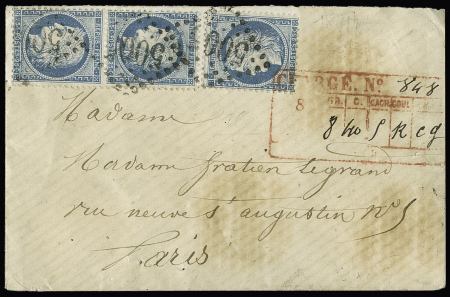 CHARGE. No 848
8 GR. C. CACH. COUL
Madame
Madame Gratien Legrand
rue neuve St augustin No 5
Paris